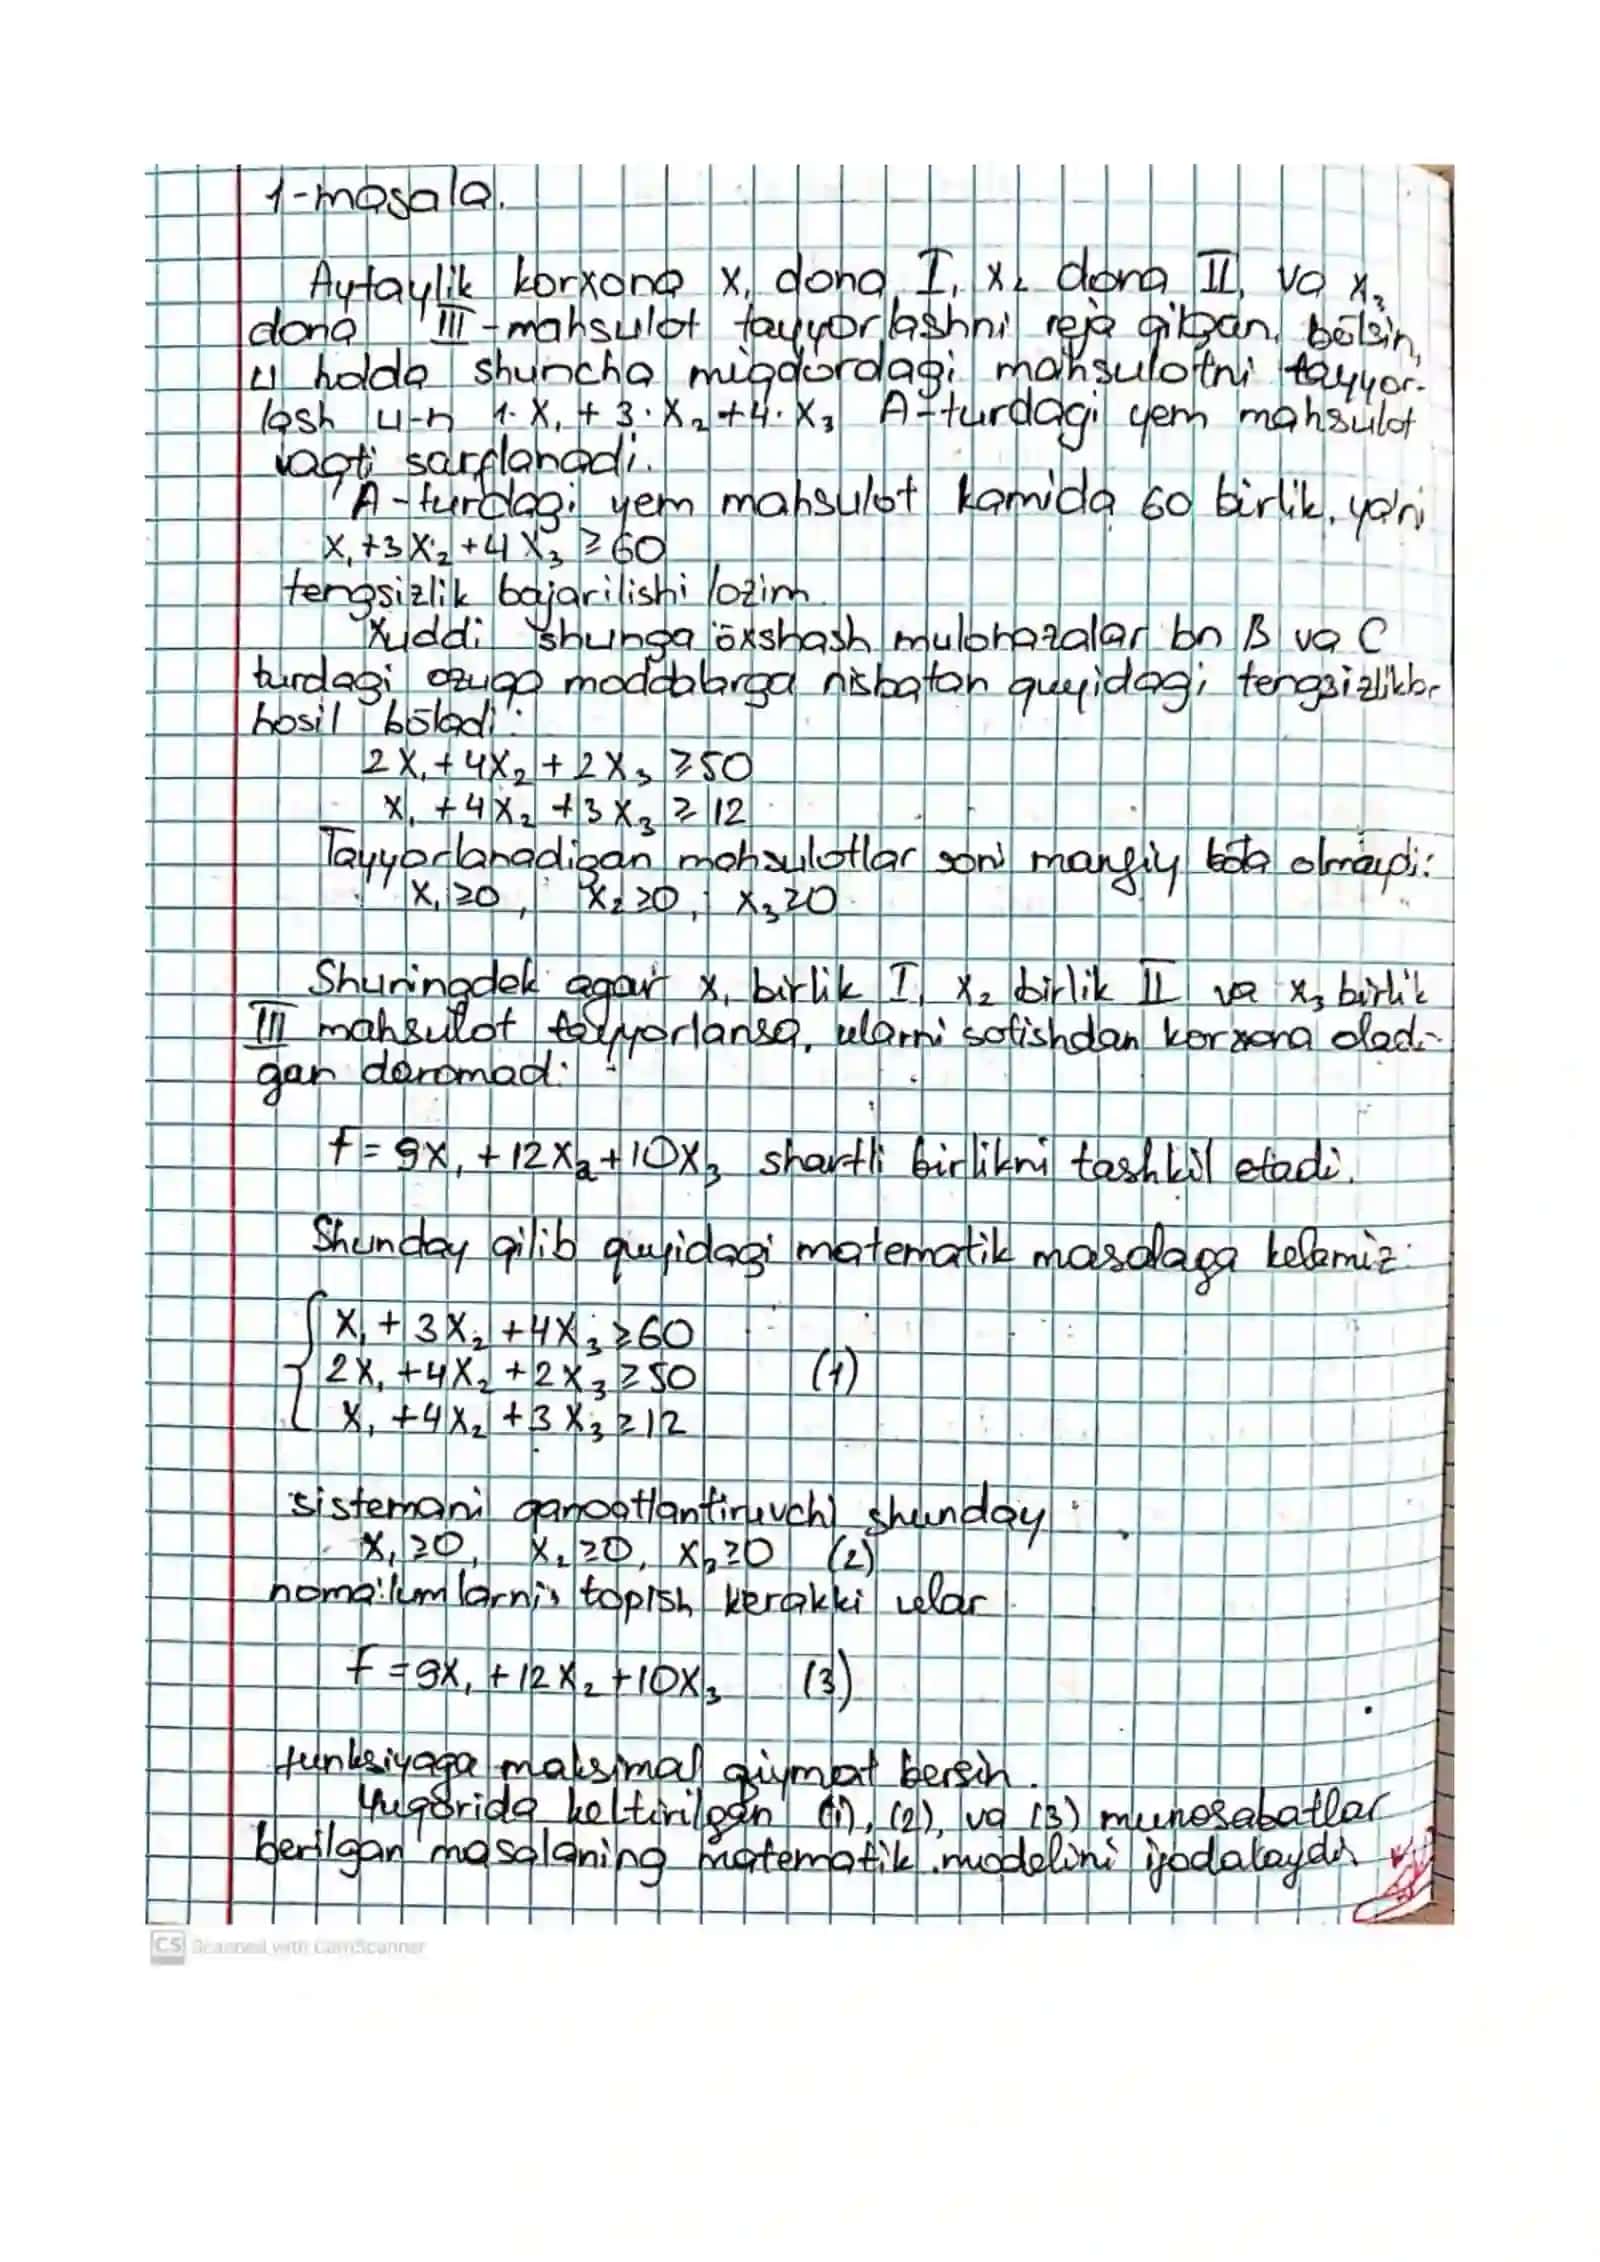 1-masala.
Aytaylik korxona x₁ dona I, x₂ dona II, va x₃
dona III-mahsulot tayyorlashni reja qilgan bōlsin,
u holda shuncha miqdordagi mahsulotni tayyor-
lash u-n 1·x₁ + 3·x₂ + 4·x₃ A-turdagi yem mahsulot
vaqti sarflanadi.
A-turdagi yem mahsulot kamida 60 birlik, ya'ni
x₁+3x₂+4x₃ ≥ 60
tengsizlik bajarilishi lozim.
Xuddi shunga ōxshash mulohazalar bn B va C
turdagi ozuqa moddalarga nisbatan quyidagi tengsizliklar
hosil bōladi:
2x₁+4x₂+2x₃ ≥50
x₁+4x₂+3x₃ ≥ 12
Tayyorlanadigan mahsulotlar soni manfiy bōla olmaydi:
x₁≥0, x₂≥0, x₃≥0
Shuningdek agar x₁ birlik I, x₂ birlik II va x₃ birlik
III mahsulot tayyorlansa, ularni sotishdan korxona oladi-
gan daromad:
f=9x₁+12x₂+10x₃ shartli birlikni tashkil etadi.
Shunday qilib quyidagi matematik masalaga kelamiz:
x₁+3x₂+4x₃≥60
2x₁+4x₂+2x₃≥50 (1)
x₁+4x₂+3x₃≥12
sistemani qanoatlantiruvchi shunday
x₁≥0, x₂≥0, x₃≥0 (2)
noma'lumlarni topish kerakki ular
f=9x₁+12x₂+10x₃ (3)
funksiyaga maksimal qiymat bersin.
Yuqorida keltirilgan (1), (2), va (3) munosabatlar
berilgan masalaning matematik modelini ifodalaydi
CS Scanned with CamScanner